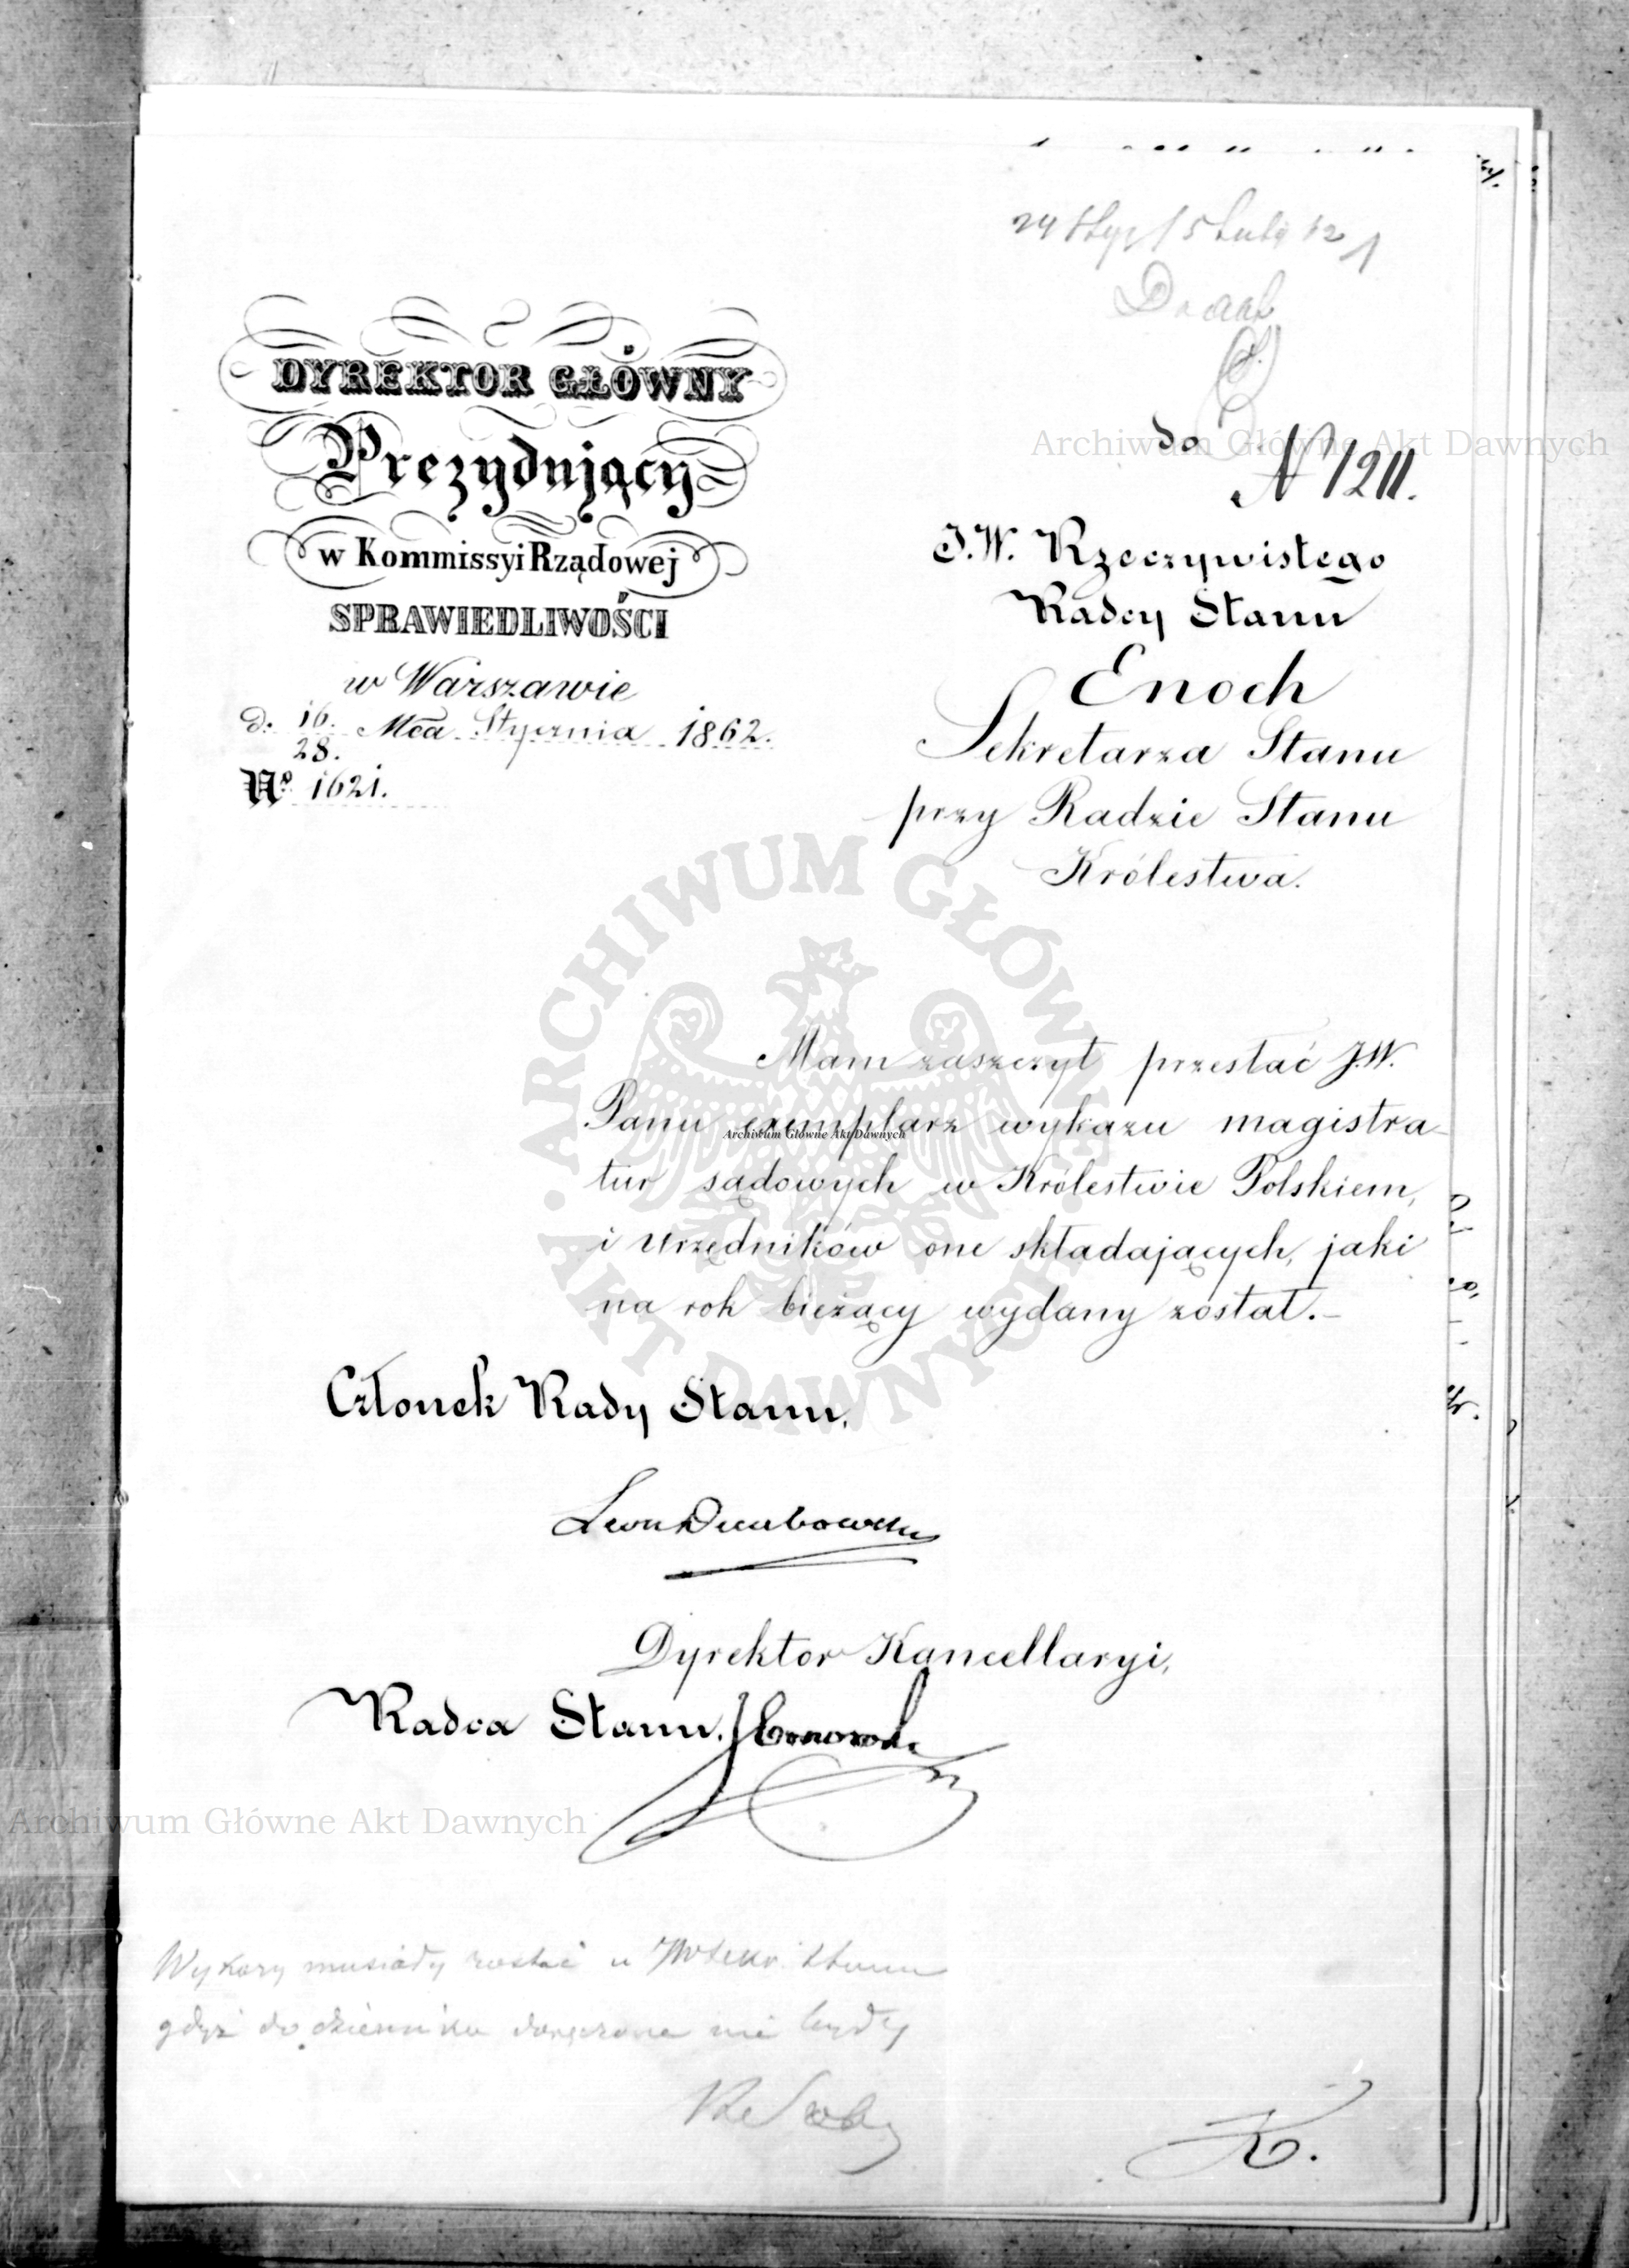 24 Stycz / 5 Lut 62 1
DYREKTOR GŁÓWNY
Prezydujący
w Kommissyi Rządowej
SPRAWIEDLIWOŚCI
w Warszawie
d. 16. Mca Stycznia 1862.
28.
No. 1621.
do
N 1211.
J.W. Rzeczywistego
Radcy Stanu
Enoch
Sekretarza Stanu
przy Radzie Stanu
Królestwa.
Mam zaszczyt przesłać J.W.
Panu exemplarz wykazu magistra-
tur sądowych w Królestwie Polskiem,
i Urzędników one składających, jaki
na rok bieżący wydany został.-
Członek Rady Stanu,
Leon Dembowski
Dyrektor Kancellaryi,
Radca Stanu.
Wykazy musiały zostać u JW Sekr. Stanu
gdyż do dziennika doręczone nie były
K.
Archiwum Główne Akt Dawnych
Archiwum Główne Akt Dawnych
Archiwum Główne Akt Dawnych
ARCHIWUM GŁÓWNE AKT DAWNYCH